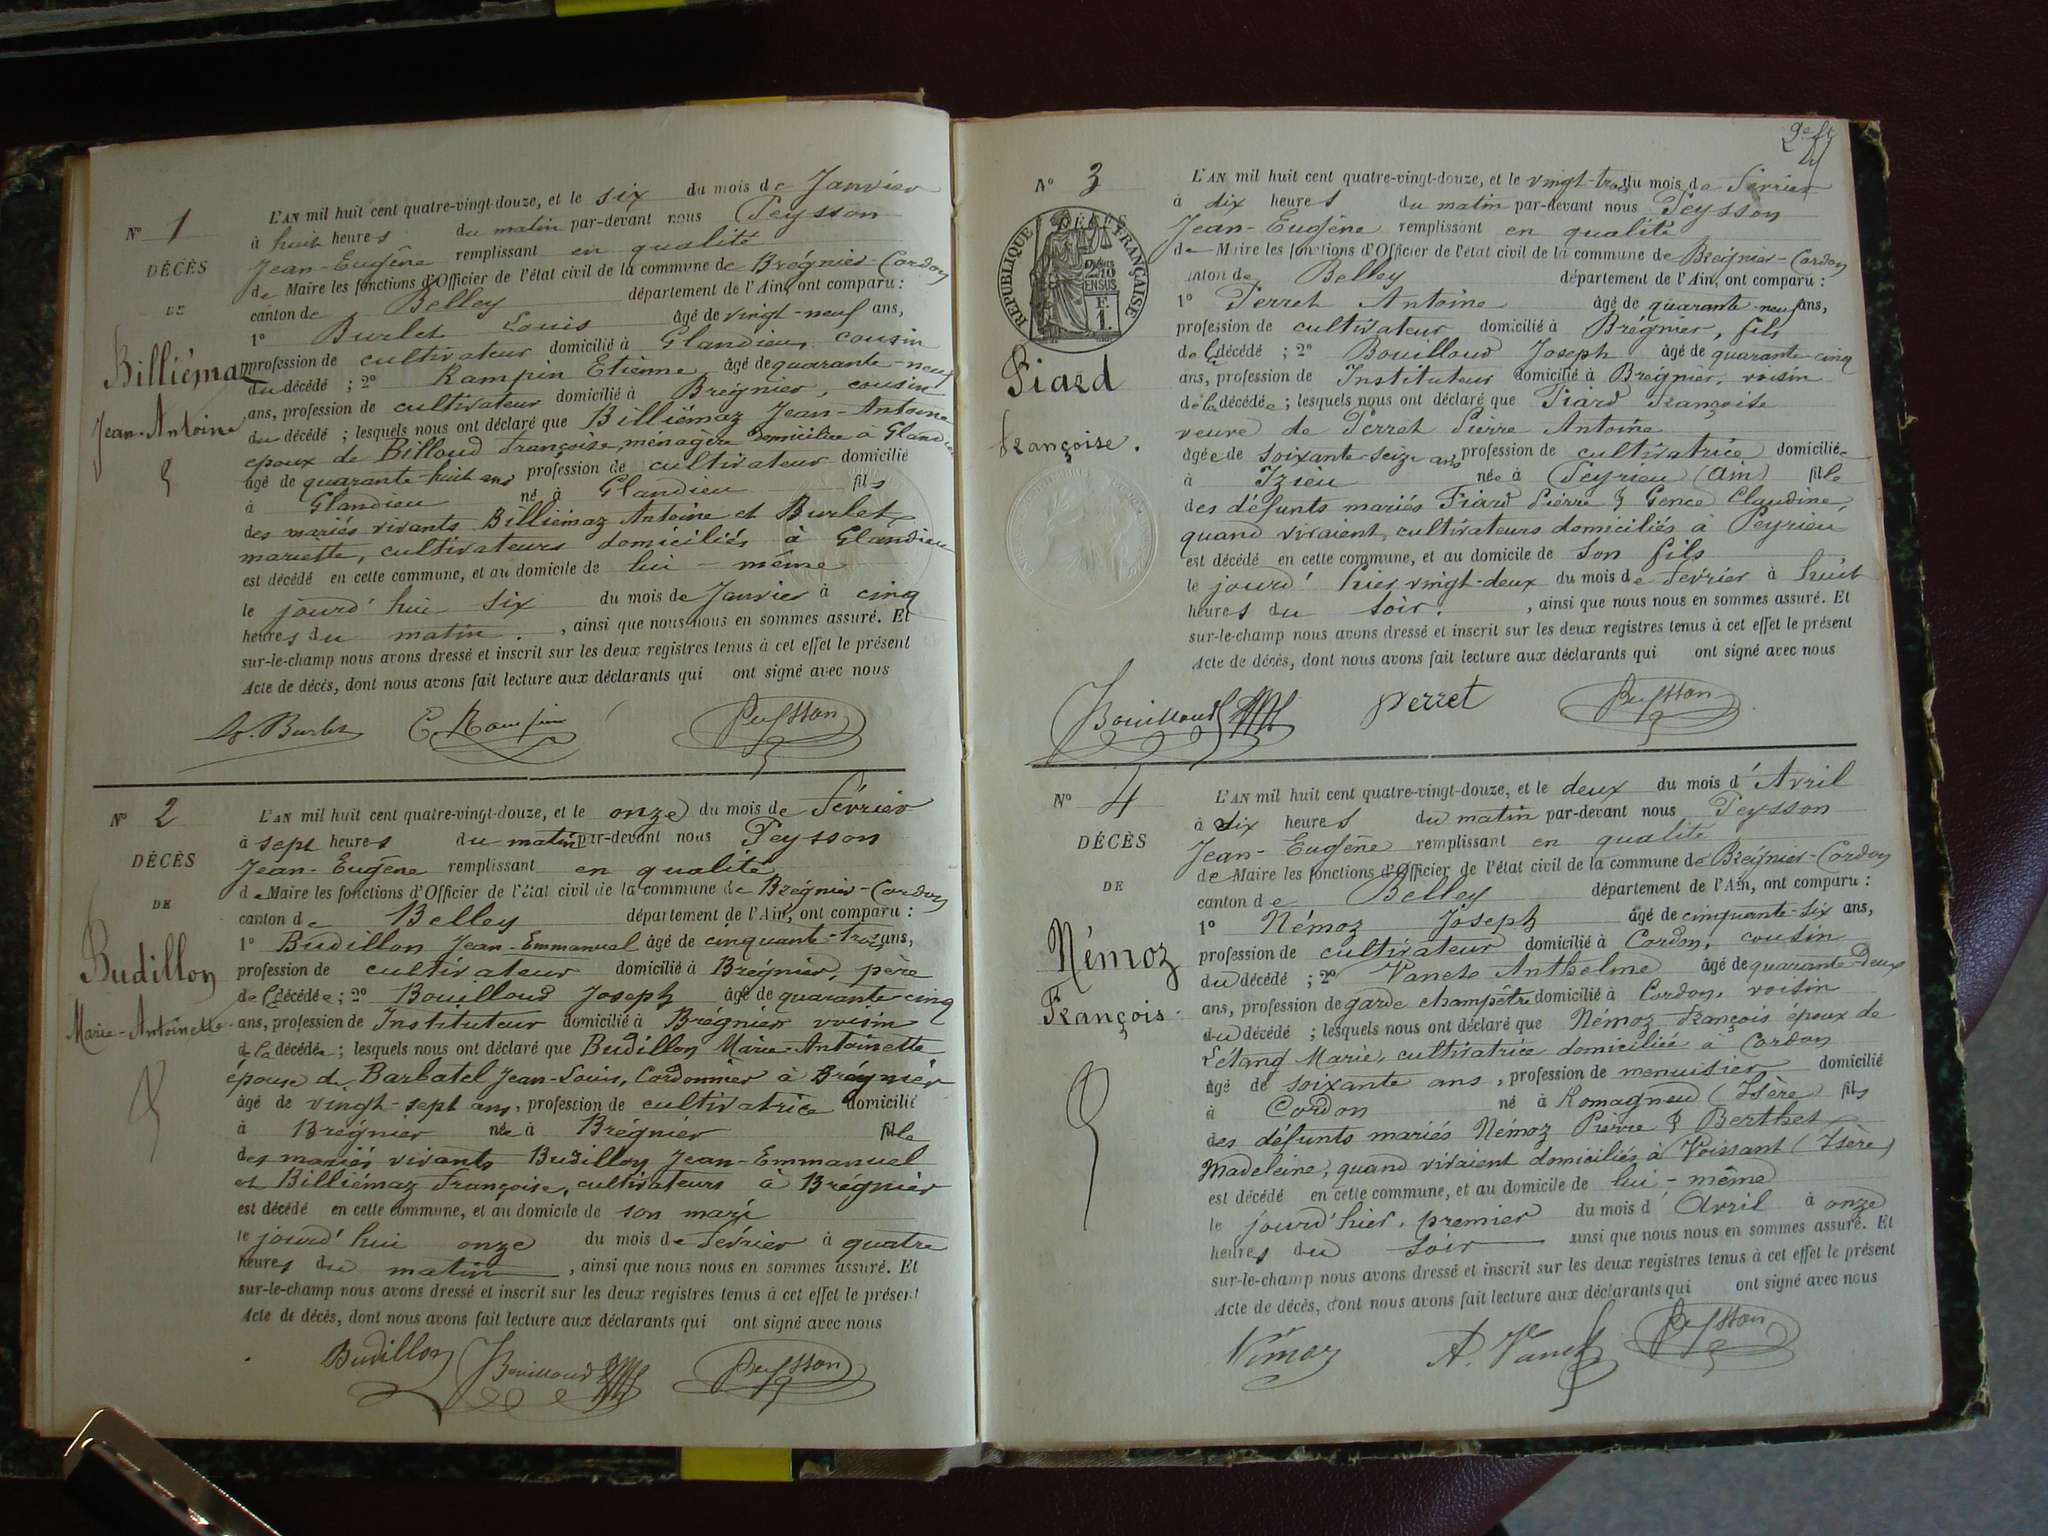 N° 1
DÉCÈS
DE
Billiémaz
Jean-Antoine
L'AN mil huit cent quatre-vingt-douze, et le six du mois de Janvier
à huit heures du matin par-devant nous Peysson
Jean-Eugène remplissant en qualité
de Maire les fonctions d'Officier de l'état civil de la commune de Brégnier-Cordon
canton de Belley département de l'Ain, ont comparu :
1° Burlet Louis âgé de vingt-neuf ans,
profession de cultivateur domicilié à Glandieu, cousin
du décédé ; 2° Rampin Etienne âgé de quarante-neuf
ans, profession de cultivateur domicilié à Brégnier, cousin
du décédé ; lesquels nous ont déclaré que Billiémaz Jean-Antoine
époux de Billoud Françoise, menagère domiciliée à Glandieu
âgé de quarante huit ans profession de cultivateur domicilié
à Glandieu né à Glandieu fils
des mariés vivants Billiémaz Antoine et Burlet
mariette, cultivateurs domiciliés à Glandieu
est décédé en cette commune, et au domicile de lui-même
le jourd'hui six du mois de Janvier à cinq
heures du matin. , ainsi que nous nous en sommes assuré. Et
sur-le-champ nous avons dressé et inscrit sur les deux registres tenus à cet effet le présent
Acte de décès, dont nous avons fait lecture aux déclarants qui ont signé avec nous
L. Burlet E. Rampin Peysson
N° 2
DÉCÈS
DE
Budillon
Marie-Antoinette
L'AN mil huit cent quatre-vingt-douze, et le onze du mois de Février
à sept heures du matin par-devant nous Peysson
Jean-Eugène remplissant en qualité
de Maire les fonctions d'Officier de l'état civil de la commune de Brégnier-Cordon
canton de Belley département de l'Ain, ont comparu :
1° Budillon Jean-Emmanuel âgé de cinquante-trois ans,
profession de cultivateur domicilié à Brégnier, père
de la décédée ; 2° Bouilloud Joseph âgé de quarante cinq
ans, profession de Instituteur domicilié à Brégnier voisin
de la décédée ; lesquels nous ont déclaré que Budillon Marie-Antoinette
épouse de Barbatel Jean-Louis, Cordonnier à Brégnier
âgé de vingt-sept ans, profession de cultivatrice domicilié
à Brégnier née à Brégnier fille
des mariés vivants Budillon Jean-Emmanuel
et Billiémaz Françoise, cultivateurs à Brégnier
est décédé en cette commune, et au domicile de son mari
le jourd'hui onze du mois de Février à quatre
heures du matin , ainsi que nous nous en sommes assuré. Et
sur-le-champ nous avons dressé et inscrit sur les deux registres tenus à cet effet le présent
Acte de décès, dont nous avons fait lecture aux déclarants qui ont signé avec nous
Budillon Bouilloud Peysson
N° 3
DÉCÈS
RÉPUBLIQUE FRANÇAISE
2/10
EN SUS
F.
1.
Fiard
Françoise.
L'AN mil huit cent quatre-vingt-douze, et le vingt-trois du mois de Février
à dix heures du matin par-devant nous Peysson
Jean-Eugène remplissant en qualité
de Maire les fonctions d'Officier de l'état civil de la commune de Brégnier-Cordon
canton de Belley département de l'Ain, ont comparu :
1° Perret Antoine âgé de quarante-neuf ans,
profession de cultivateur domicilié à Brégnier, fils
de la décédé ; 2° Bouilloud Joseph âgé de quarante-cinq
ans, profession de Instituteur domicilié à Brégnier, voisin
de la décédée ; lesquels nous ont déclaré que Fiard Françoise
veuve de Perret Pierre Antoine
âgée de soixante-seize ans profession de cultivatrice domiciliée
à Izieu née à Peyrieu (Ain) fille
des défunts mariés Fiard Pierre & Gence Claudine,
quand vivaient, cultivateurs domiciliés à Peyrieu
est décédé en cette commune, et au domicile de son fils
le jourd'hier vingt-deux du mois de Février à huit
heures du soir. , ainsi que nous nous en sommes assuré. Et
sur-le-champ nous avons dressé et inscrit sur les deux registres tenus à cet effet le présent
Acte de décès, dont nous avons fait lecture aux déclarants qui ont signé avec nous
Bouilloud perret Peysson
N° 4
DÉCÈS
DE
Némoz
François.
L'AN mil huit cent quatre-vingt-douze, et le deux du mois d'Avril
à six heures du matin par-devant nous Peysson
Jean-Eugène remplissant en qualité
de Maire les fonctions d'Officier de l'état civil de la commune de Brégnier-Cordon
canton de Belley département de l'Ain, ont comparu :
1° Némoz Joseph âgé de cinquante-six ans,
profession de cultivateur domicilié à Cordon, cousin
du décédé ; 2° Vancte Anthelme âgé de quarante-deux
ans, profession de garde champêtre domicilié à Cordon, voisin
du décédé ; lesquels nous ont déclaré que Némoz François époux de
Letang Marie, cultivatrice domiciliée à Cordon
âgé de soixante ans, profession de menuisier domicilié
à Cordon né à Romagneu (Isère) fils
des défunts mariés Némoz Pierre & Berthet
Madeleine, quand vivaient domiciliés à Voissant (Isère)
est décédé en cette commune, et au domicile de lui-même
le jourd'hier, premier du mois d'Avril à onze
heures du soir ainsi que nous nous en sommes assuré. Et
sur-le-champ nous avons dressé et inscrit sur les deux registres tenus à cet effet le présent
Acte de décès, dont nous avons fait lecture aux déclarants qui ont signé avec nous
Némoz Peysson